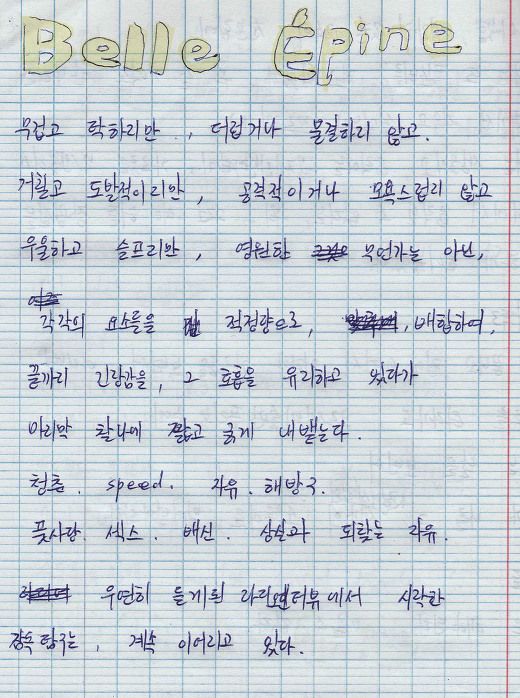 Belle Épine
무겁고 탁하지만, 더럽거나 불결하지 않고.
거칠고 도발적이지만, 공격적이거나 모욕스럽지 않고
우울하고 슬프지만, 영원한 무언가는 아닌,
각각의 요소들을 적정량으로, 배합하여,
끝까지 긴장감을, 그 호흡을 유지하고 있다가
마지막 찰나에 짧고 굵게 내뱉는다.
청춘. speed. 자유. 해방구.
풋사랑. 섹스. 배신. 상실과 되찾는 자유.
우연히 듣게된 라디오 인터뷰에서 시작한
장속탐구는, 계속 이어지고 있다.